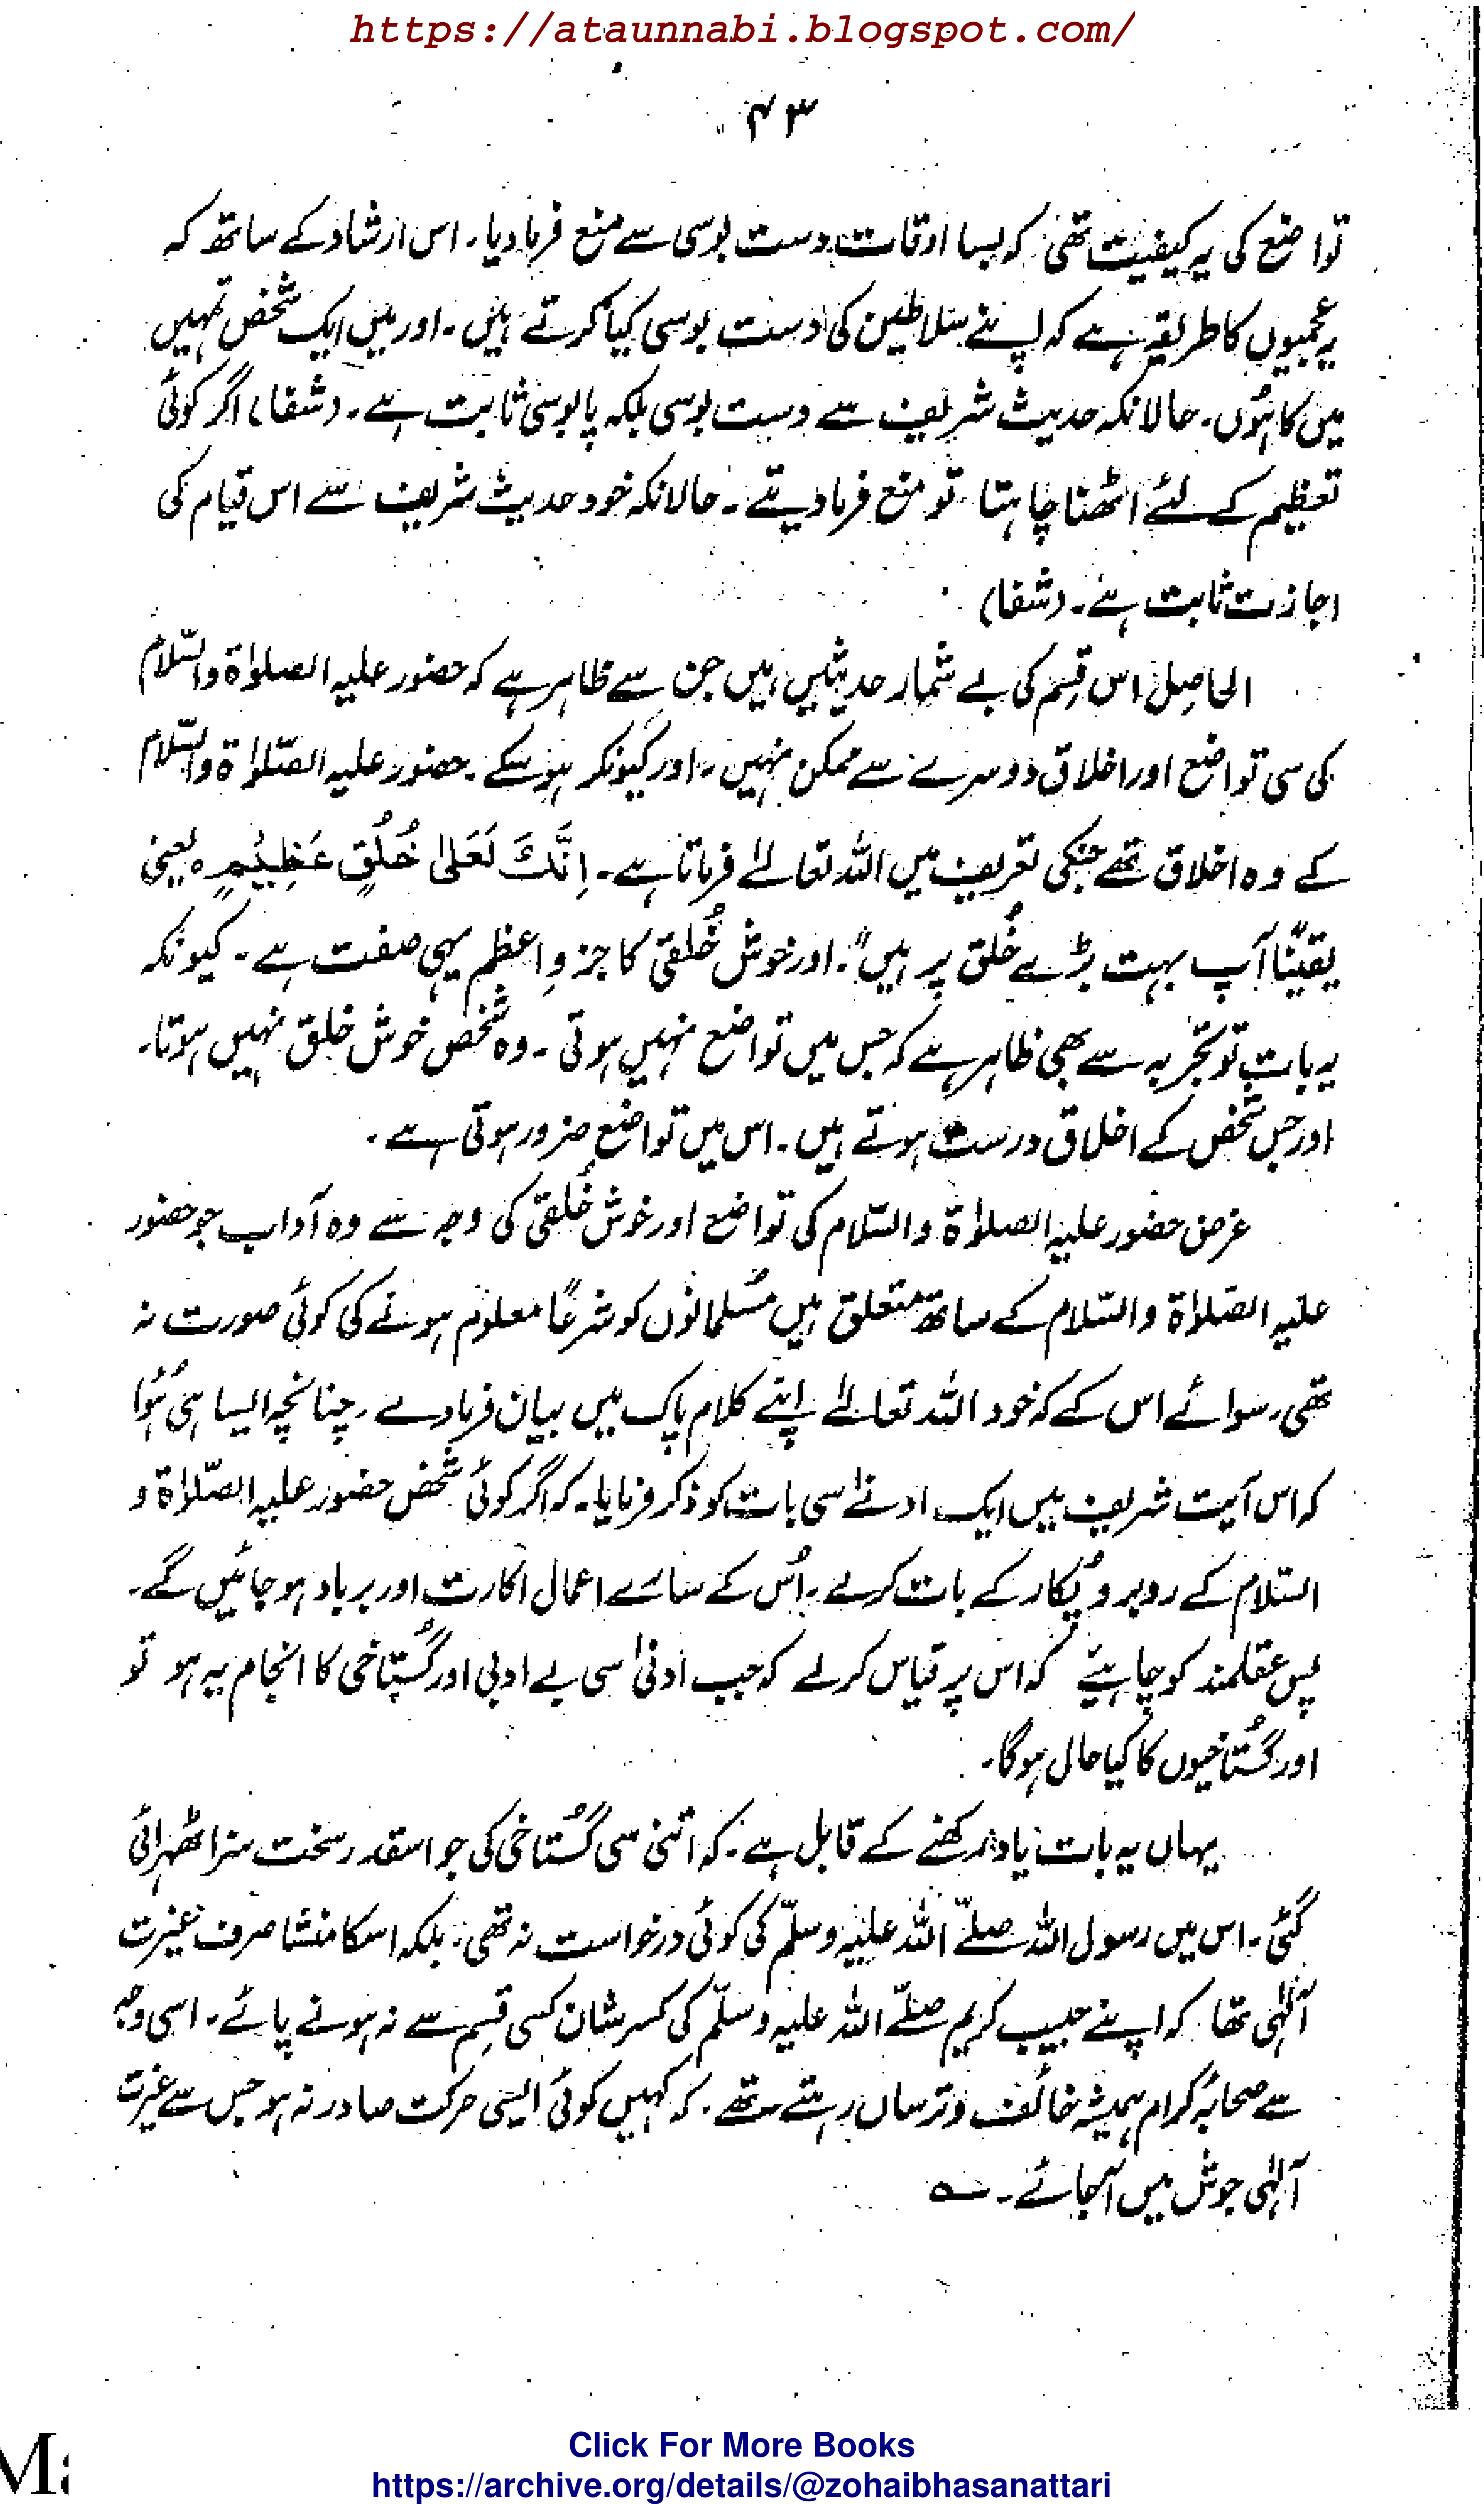 https://ataunnabi.blogspot.com/
۴۳
تواضع کی یہ کیفیت تھی کہ بسا اوقات دست بوسی سے منع فرما دیا۔ اس ارشاد کے ساتھ کہ
یہ عجمیوں کا طریقہ ہے کہ اپنے سلاطین کی دست بوسی کیا کرتے ہیں۔ اور میں ایک شخص تمہیں
میں کا ہوں۔ حالانکہ حدیث شریف سے دست بوسی بلکہ پابوسی ثابت ہے۔ (شفا) اگر کوئی
تعظیم کے لئے اٹھنا چاہتا تو منع فرما دیتے۔ حالانکہ خود حدیث شریف سے اس قیام کی
اجازت ثابت ہے۔ (شفا)
الحاصِل اس قِسم کی بے شُمار حدیثیں ہیں جن سے ظاہر ہے کہ حضور علیہ الصلوٰۃ والسّلام
کی سی تواضع اور اخلاق دوسرے سے ممکن نہیں۔ اور کیونکر ہو سکے۔ حضور علیہ الصّلوٰۃ والسّلام
کے وہ اخلاق تھے جنکی تعریف میں اللہ تعالےٰ فرماتا ہے۔ اِنَّكَ لَعَلیٰ خُلُقٍ عَظِيْمٍ ہ یعنی
یقینًا آپ بہت بڑے خُلق پر ہیں"۔ اور خوش خُلقی کا جزوِ اعظم یہی صفت ہے۔ کیونکہ
یہ بات تو تجربہ سے بھی ظاہر ہے کہ جس میں تواضع نہیں ہوتی۔ وہ شخص خوش خلق نہیں ہوتا۔
اور جس شخص کے اخلاق درست ہوتے ہیں۔ اس میں تواضع ضرور ہوتی ہے۔
غرض حضور علیہ الصلوٰۃ والسّلام کی تواضع اور خوش خُلقی کی وجہ سے وہ آداب جو حضور
علیہ الصّلوٰۃ والسّلام کے ساتھ متعلق ہیں مُسلمانوں کو شرعًا معلوم ہونے کی کوئی صورت نہ
تھی سوائے اس کے کہ خود اللہ تعالےٰ اپنے کلام پاک میں بیان فرما دے۔ چنانچہ ایسا ہی ہُوا
کہ اس آیت شریف میں ایک ادنےٰ سی بات کو ذکر فرمایا۔ کہ اگر کوئی شخص حضور علیہ الصّلوٰۃ و
السّلام کے روبرو پُکار کے بات کرے۔ اُس کے سارے اعمال اکارت اور برباد ہو جائیں گے۔
پس عقلمند کو چاہیئے کہ اس پر قیاس کر لے کہ جب ادنیٰ سی بے ادبی اور گُستاخی کا انجام یہ ہو تو
اور گُستاخیوں کا کیا حال ہوگا۔
یہاں یہ بات یاد رکھنے کے قابل ہے۔ کہ اتنی سی گُستاخی کی جو اسقدر سخت سزا ٹھہرائی
گئی۔ اس میں رسول اللہ صلےّ اللہ علیہ وسلّم کی کوئی درخواست نہ تھی۔ بلکہ اسکا منشا صرف غیرت
آلٰہی تھا کہ اپنے حبیب کریم صلےّ اللہ علیہ وسلّم کی کسرِ شان کسی قِسم سے نہ ہونے پائے۔ اسی وجہ
سے صحابۂ کرام ہمیشہ خائف و ترساں رہتے تھے۔ کہ کہیں کوئی ایسی حرکت صادر نہ ہو جس سے غیرت
آلٰہی جوش میں آجائے۔
Click For More Books
https://archive.org/details/@zohaibhasanattari